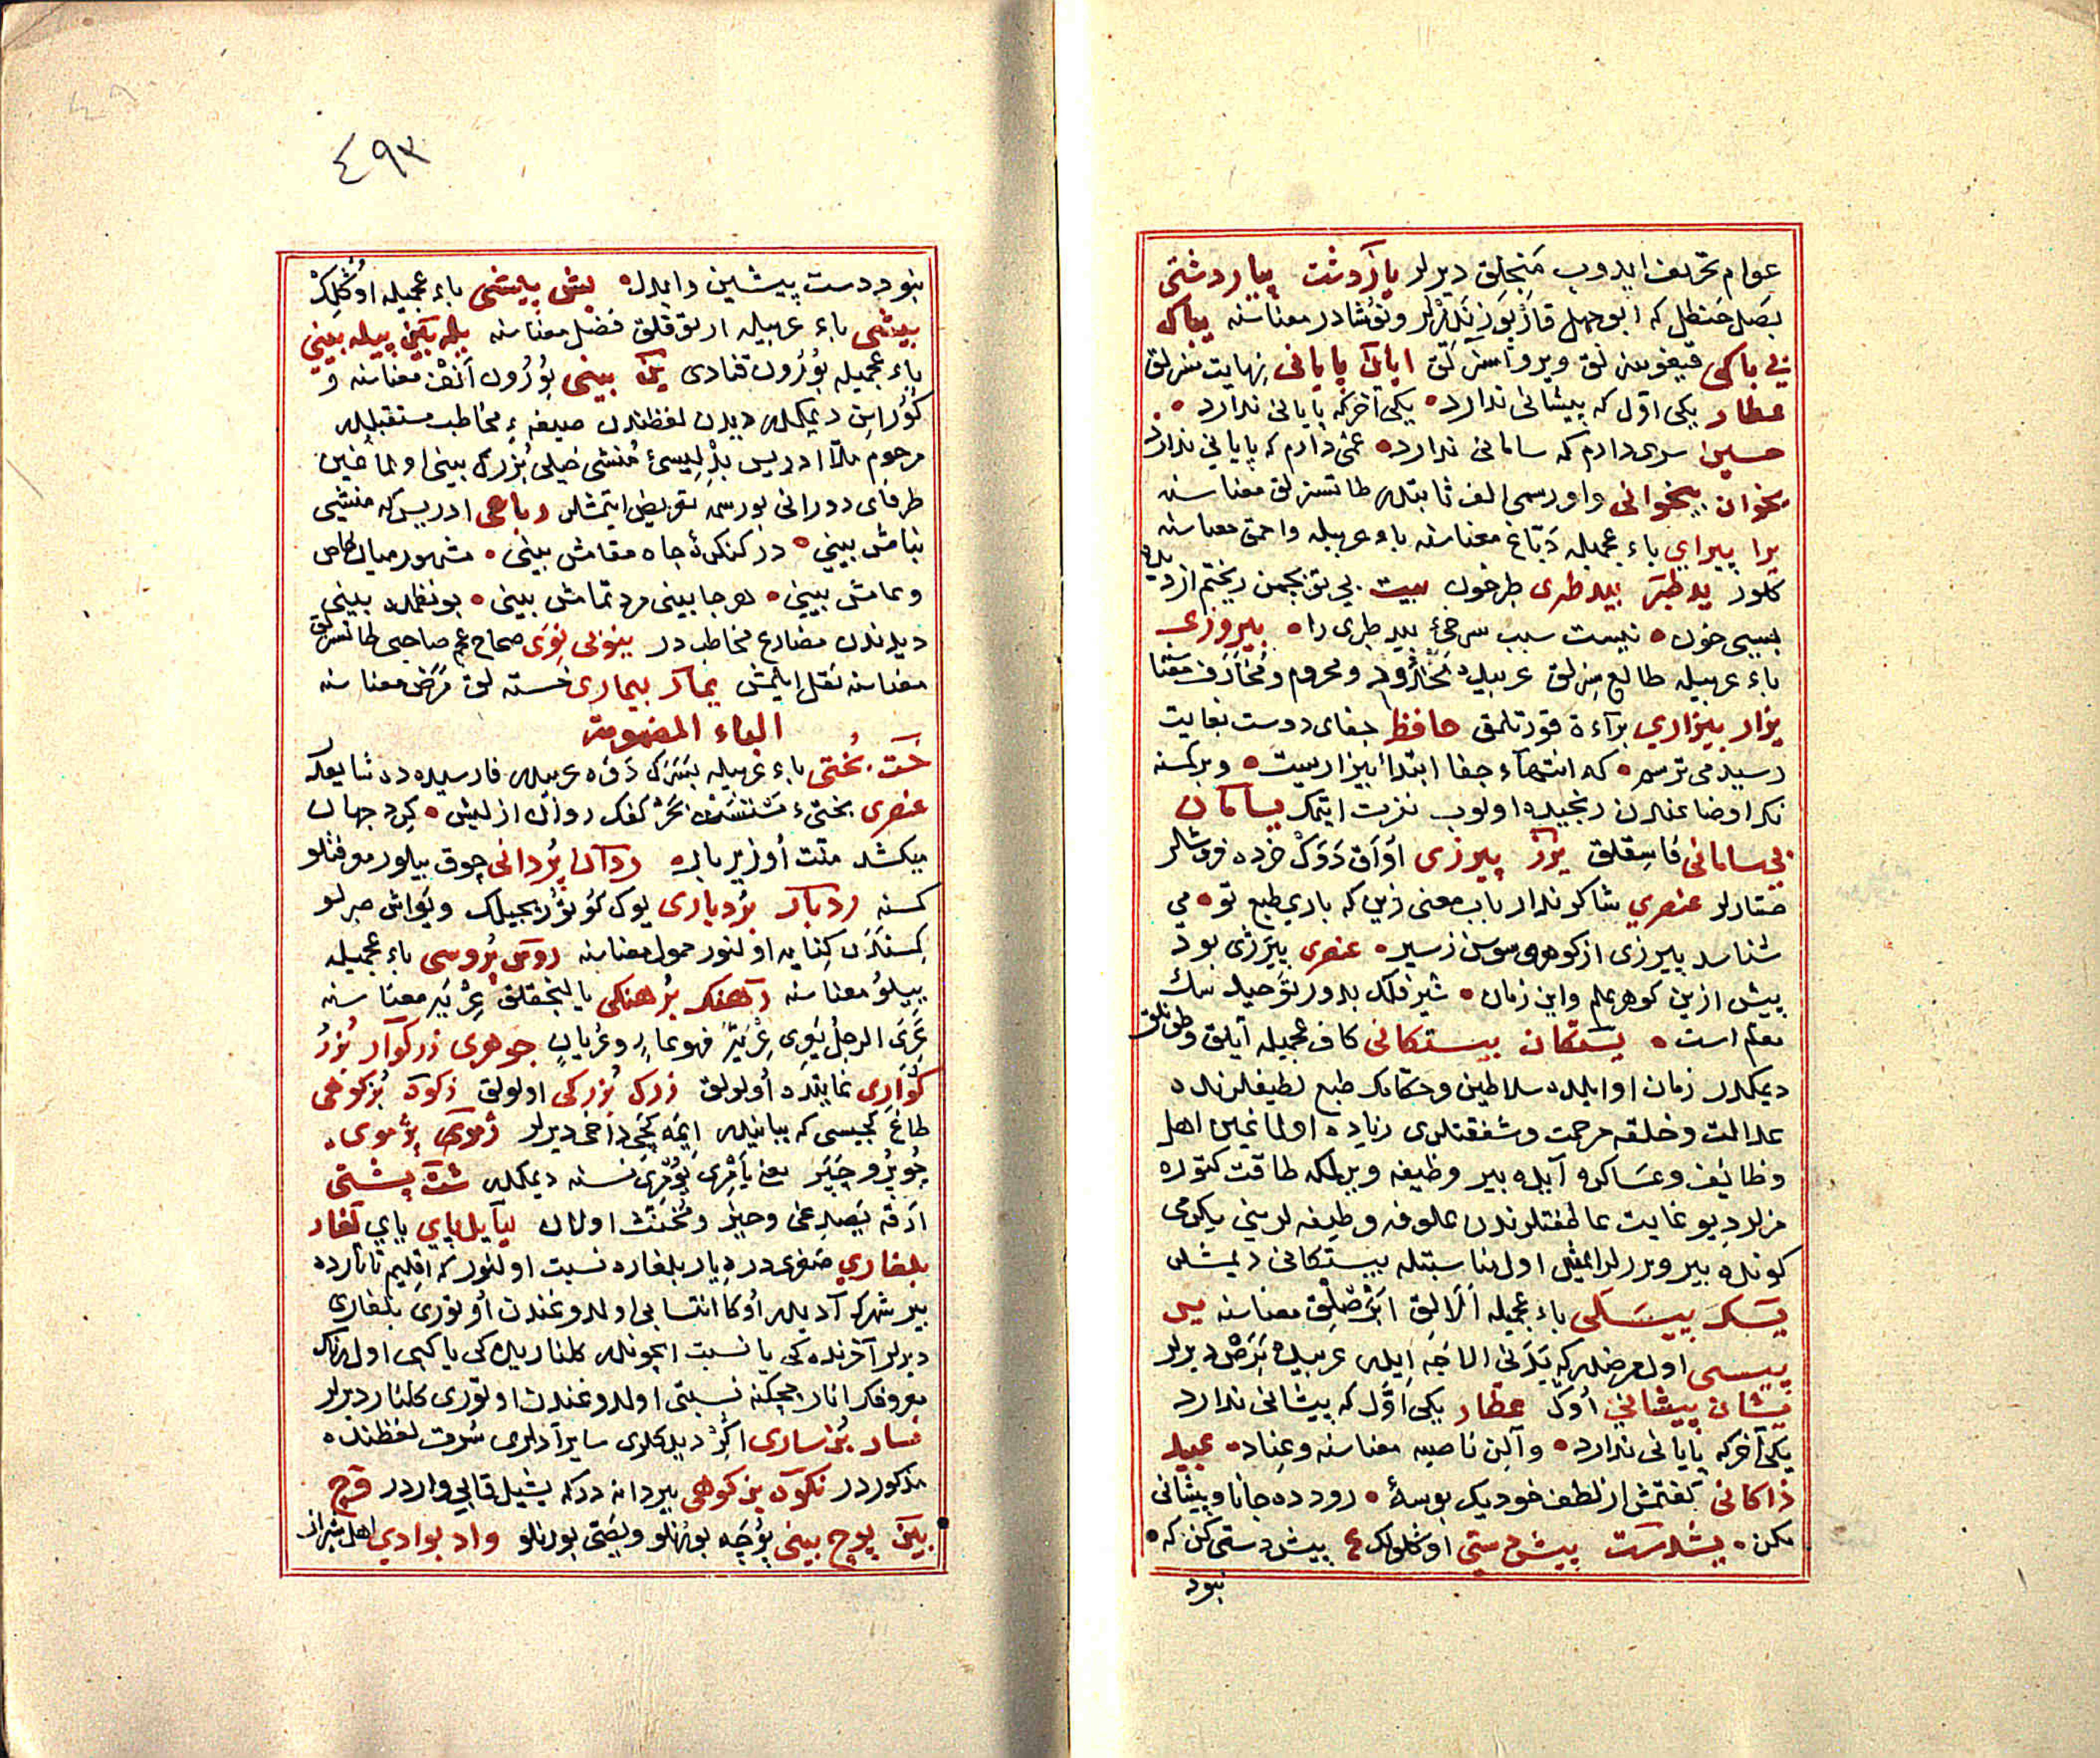 عوام تحریف ایدوب منجلق دیرلر یاردشت پیاردشتی
بصل حنظل که ابوجهل قارپوزندرلر ونوشادر معناسنه بیباک
بی باکی قیغوسزلق وپرواسزلق ابایان پایانی نهایت سزلق
عطار یکی اول که پیشانی ندارد یکی آخرکه پایانی ندارد
حسین سری دارم که سامانی ندارد غمی دارم که پایانی ندارد
بخوان بیخوانی واو رسمی الف ثابتدر طاتسزلق معناسنه
یرا پیرای باء عجمیله دباغ معناسنه باء عربیله واحمق معناسنه
کلور یدطبر بیدطبری طرخون بیت بی تو بچمن ریختم از دیده
بسی خون نیست سبب سرخئ بید طبری را بیروزی
باء عربیله طالع سزلق عربیده محدود ومحروم ومحارف معنا
یزار بیزاری براءة قورتلمق حافظ جفای دوست بغایت
رسید می ترسم که انتهاء جفا ابتداء بیزاریست وبر کمسنه
نک اوضاعندن رنجیده اولوب نفرت ایتمک یسامان
بی سامانی فاسقلق یرز پیرزی اواق دوک خرده فروشلر
صتارلر عنصری شاکر ندارباب معنی زین که باری طبع تو می
شناسد پیرزی ازکوهر سوسن زسیر عنصری پیرزی بود
پیش ازین کوهر علم واین زمان شیر فلک بدور توحید سک
معلم است یستکان بیستکانی کاف عجمیله آیلق وطونلق
دیمکدر زمان اوایلده سلاطین وحکامک طبع لطیفلرنده
عدالت وخلقه مرحمت وشفقتلری زیاده اولماغین اهل
وظائف وعساکره آیده بیر وظیفه ویرلمکه طاقت کتوره
مزلر دیو غایت عاطفتلرندن علوفه وظیفه لرینی یکرمی
کونده بیر ویررلر ایمش اول مناسبتله بیستکانی دیمشلر
یسک پیسکی باء عجمیله الالق ابرصلق معناسنه یس
پیسی اول مرضدرکه بدنی الاجه ایلر عربیده برص دیرلر
یشان پیشانی اوک عطار یکی اول که پیشانی ندارد
یکی آخرکه پایانی ندارد وآلن ناصیه معناسنه وعناد عبید
ذاکانی کفتمش از لطف خود یک بوسهٔ رو دده جانا وپیشانی
مکن یشدست پیش دستی اوکلولک ع پیش دستی کن که
نبود
٤٩٣
نبود دست پیشین را بدل یش پیشی باء عجمیله اوکلک
بیشی باء عربیله ارتوقلق فضل معناسنه یله بینی پیله بینی
باء عجمیله بورون قنادی ین بینی بورون انف معناسنه و
کورراسن دیمکدر دیدن لفظندن صیغهٔ مخاطب مستقبلدر
مرحوم ملا ادریس بدلیسئ منشی خیلی بزرک بینی اولماغین
ظرفای دورانی بو رسمه تعریض ایتمشلر رباعی ادریس که منشیی
بنامش بینی در کنکرهٔ جاه مقامش بینی مشهور میان خاص
وعامش بینی هرجا بینی مرد تمامش بینی بو نظمده بینی
دیدندن مضارع مخاطب در ینوی بی نوی صحاح عجم صاحبی طاتسزلق
معناسنه نقل ایلمش یمار بیماری خسته لق مرض معناسنه
الباء المضمومة
خت بختی باء عربیله بیسرک دوه عربیدر فارسیده ده شایعدر
عنصری بختیء مستنست بحر کفک روان از لبش کرد جهان
میکشد منت او زیر بار ردان بردانی چوق بیلور موفنلو
کمسنه ردبار بردباری یوک کوتوریجیلک ویواش صبرلو
کمسنه دن کنایه اولنور حمول معناسنه روس بروسی باء عجمیله
بیلو معناسنه رهنک برهنکی یالنجقلق عریه معناسنه
عری الرجل یعری عریة فهو عار وعریان جوهری زرکوار بزر
کواری نمایتده اولولق زرک بزرکی اولولق زکوه بزکوهی
طاغ کجیسی که ببانیدر ایمه کجی داخی دیرلر ژموی پژموی
جوپر وچپر یعنی یاقری یوقری نسنه دیمکدر شت پشتی
ارقه یصدغی وحیز ومخنث اولان لپایل پای پای لغار
بلغاری صغری در دیار بلغاره نسبت اولنور که اقلیم تاتارده
بیر شهرک آدیدر اوکا انتسابی اولدوغندن اوتوری بلغاری
دیرلر آخرنده کی یا نسبت ایچوندر کلناریده کی یا کبی اول رنک
معروفک انار چیچکنه نسبتی اولدوغندن اوتوری کلنار دیرلر
نسار بن ساری اکر دیدکلری سایر آدلری شرفت لفظنده
مذکوردر نکوه بن کوهی بیر دانه درکه یشیل قابی واردر قوچ
بین پوچ بینی پوچه بورنلو ویصی بورنلو واد بوادی اهل شیراز